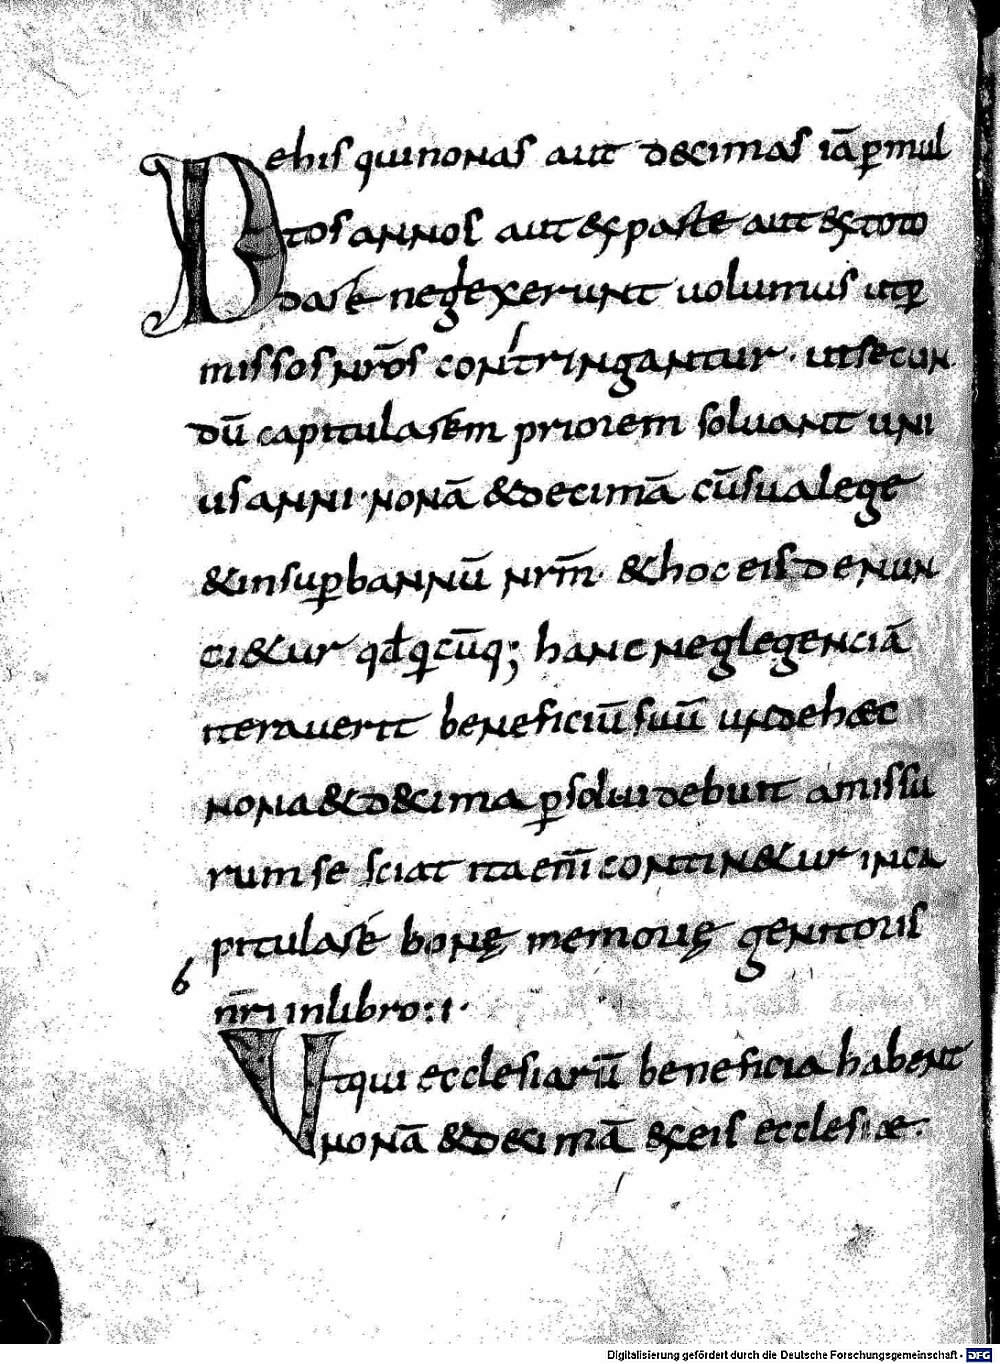 Dehis qui nonas aut decimas iā ꝑmul
tos annos aut ex parte aut ex toto
dare neglexerunt uolumus utꝑ
missos nr̄os constringantur · utsecun
dū capitularem priorem soluant uni
us anni · nonā &decimā cū sua lege
&insuꝑ bannū nrm̄ · &hoc eis denun
ci&ur qđ qicūq; hanc neglegenciā
iterauerit beneficiū suū undehæc
nona &d&cima ꝑsolui debuit amissu
rum se sciat ita enī contin&ur inca
pitulare bonę memorię genitoris
nr̄i inlibro : i ·
6
Ut qui ecclesiarū beneficia habent
nonā &decimā ex eis ecclesiae :
Digitalisierung gefördert durch die Deutsche Forschungsgemeinschaft - DFG